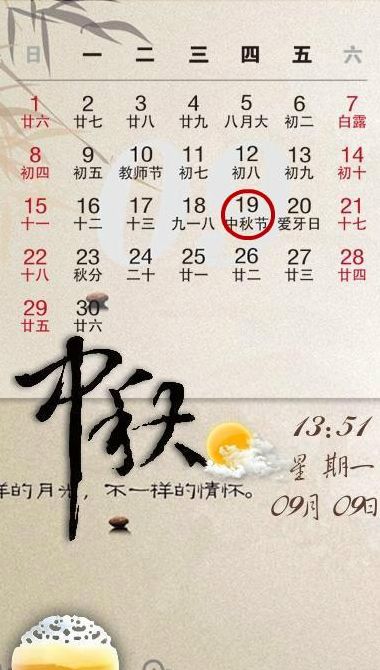 日 一 二 三 四 五 六
1 2 3 4 5 6 7
廿六 廿七 廿八 廿九 八月大 初二 白露
8 9 10 11 12 13 14
初四 初五 教师节 初七 初八 初九 初十
15 16 17 18 19 20 21
十一 十二 十三 九一八 中秋节 爱牙日 十七
22 23 24 25 26 27 28
十八 秋分 二十 廿一 廿二 廿三 廿四
29 30
廿五 廿六
中秋
13:51
星 期一
样的月光，不一样的情怀。
09月 09日